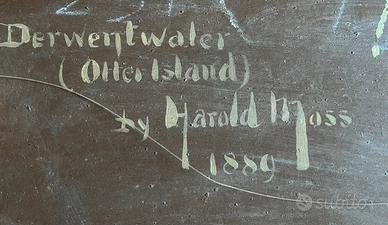 Derwentwater
(Otter Island)
by Harold Moss
1889
subito